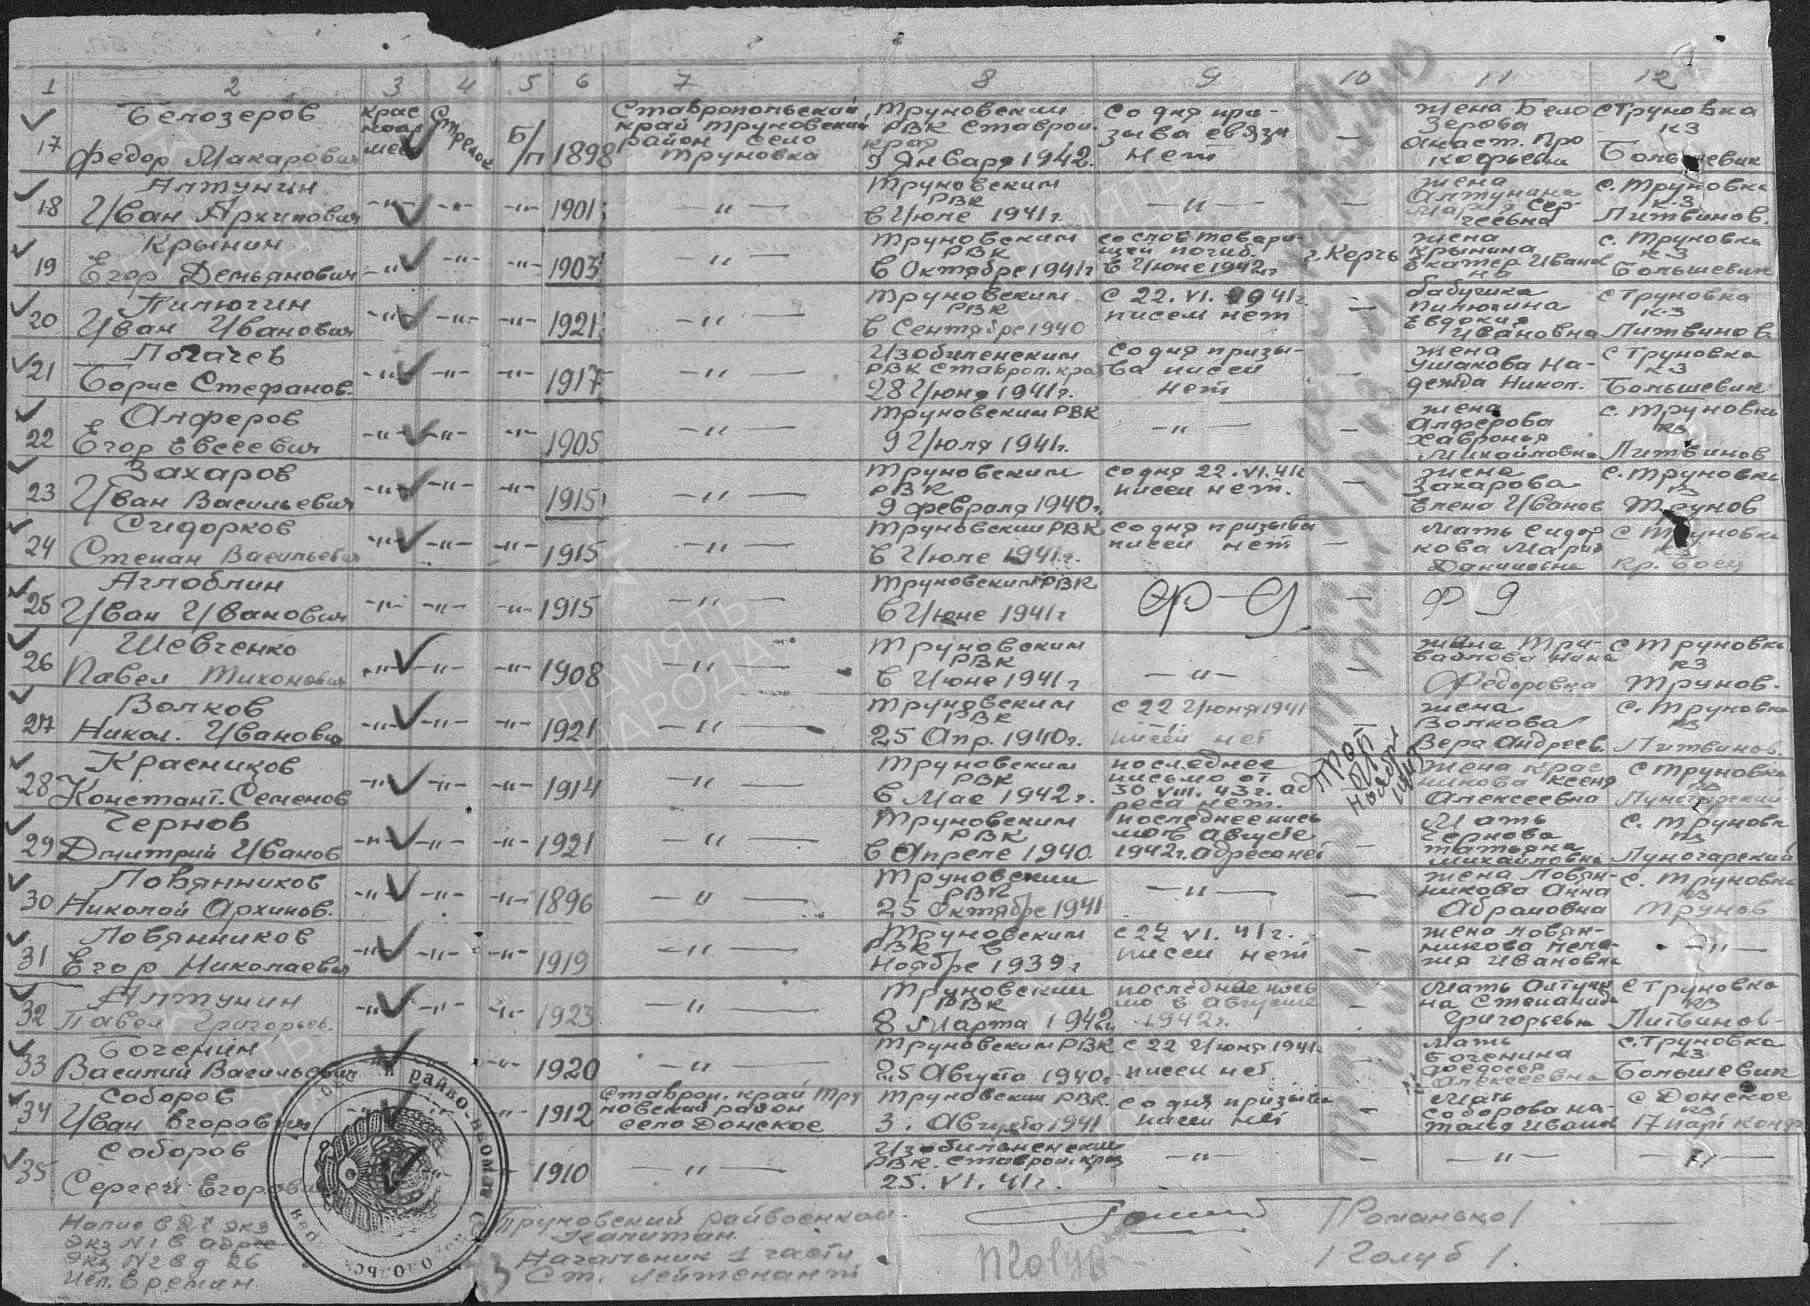 1 2 3 4 5 6 7 8 9 10 11 12
17 Белозеров Федор Макарович крас ноар меец Стрелок Б/п 1898 Ставропольский край Труновский район село Труновка Труновским РВК Ставроп. края 9 Января 1942. Со дня при- зыва связи нет — жена Бело зерова Анаст. Про кофьевн с Труновка кз Большевик
18 Алтунин Иван Архипович -"- -"- -"- 1901 -"- Труновским РВК в Июле 1941г. -"- — жена Алтунина с. Труновка к-з Литвинов.
19 Крынин Егор Демьянович -"- -"- -"- 1903 -"- Труновским РВК в Октябре 1941г со слов товари- щей погиб. в Июне 1942г г. Керчь жена Крынина Екатер Иванов на с. Труновка к-з Большевик
20 Пилюгин Иван Иванович -"- -"- -"- 1921 -"- Труновским РВК в Сентябре 1940 с 22. VI. 1941г писем нет — бабушка Пилюгина Евдокия Ивановна с Труновка к-з Литвинов
21 Логачев Борис Стефанов. -"- -"- -"- 1917 -"- Изобиленским РВК Ставроп. края 28 Июня 1941г. Со дня призы- ва писем нет — жена Ушакова На- дежда Никол. с Труновка к-з Большевик
22 Алферов Егор Евсеевич -"- -"- -"- 1905 -"- Труновским РВК 9 Июля 1941г. -"- — жена Алферова Хавронья Михайловна с. Труновка кз Литвинов
23 Захаров Иван Васильевич -"- -"- -"- 1915 -"- Труновским РВК 9 февраля 1940г. со дня 22. VI. 41г писем нет. — жена Захарова Елена Иванов с. Труновка кз Трунов
24 Сидорков Степан Васильевич -"- -"- -"- 1915 -"- Труновским РВК в Июле 1941г. со дня призыва писем нет — Мать Сидор кова Мария Даниловна с Труновка кз Кр. боец
25 Аглоблин Иван Иванович -"- -"- -"- 1915 -"- Труновским РВК в Июне 1941г —
26 Шевченко Павел Тихонович -"- -"- -"- 1908 -"- Труновским РВК в Июне 1941г -"- жена Нина Федоровна с Труновка кз Трунов.
27 Волков Никол. Иванович -"- -"- -"- 1921 -"- Труновским РВК 25 Апр. 1940г. с 22 Июня 1941 писем нет жена Волкова Вера Андреев. с. Труновка кз Литвинов.
28 Красников Констант. Семенов -"- -"- -"- 1914 -"- Труновским РВК в Мае 1942г. последнее письмо от 30 VIII. 43г. ад реса нет. проп б/п ноябрь 1943 жена Крас никова Ксения Алексеевна с Труновка кз Луначарский
29 Чернов Дмитрий Иванов -"- -"- -"- 1921 -"- Труновским РВК в Апреле 1940. последнее пись мо в Августе 1942г. адреса нет — Мать Чернова Татьяна Михайловна с. Труновка кз Луначарский
30 Ловянников Николай Архипов. -"- -"- -"- 1896 -"- Труновским РВК 25 Октября 1941 -"- — жена Ловян- никова Анна Абрамовна с. Труновка кз Трунов
31 Ловянников Егор Николаевич -"- -"- -"- 1919 -"- Труновским РВК в Ноябре 1939г с 22 VI. 41г. писем нет — жена Ловян- никова Пела- гия Ивановна -"-
32 Алтунин Павел Григорьев. -"- -"- -"- 1923 -"- Труновским РВК 8 Марта 1942 последнее пись мо в Августе 1942г. — Мать Алтуни на Степанида Григорьевн с Труновка кз Литвинов-
33 Боченин Василий Васильевич -"- 1920 -"- Труновским РВК 25 Августа 1940г. с 22 Июня 1941г. писем нет — мать Боченина Федосья Алексеевна с. Труновка кз Большевик
34 Соборов Иван Егорович -"- 1912 Ставроп. край Тру новский район село Донское Труновским РВК 3. Августа 1941 со дня призыва писем нет — Мать Соборова На- талья Иванов с Донское кз 17 парт конф
35 Соборов Сергей Егорович 1910 -"- Изобильненским РВК. Ставроп. края 25. VI. 41г. -"- — -"- -"-
Экз N1 в адрес
Экз N2 в д 26
Исп. Еремин
Труновский райвоенком
Капитан
/Романько/
Начальник 1 части
Ст. Лейтенант
ПГолуб
/Голуб/.
ПАМЯТЬ
НАРОДА